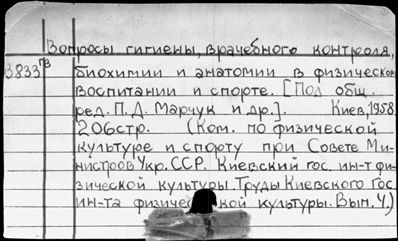 Вопросы гигиены, врачебного контроля,
В833пв биохимии и анатомии в физическом
воспитании и спорте. [Под общ.
ред. П. Д. Марчук и др.]. Киев, 1958.
206стр. (Ком. по физической
культуре и спорту при Совете Ми-
нистров Укр. ССР. Киевский гос. ин-т фи-
зической культуры. Труды Киевского Гос.
ин-та физической культуры. Вып. 4.)